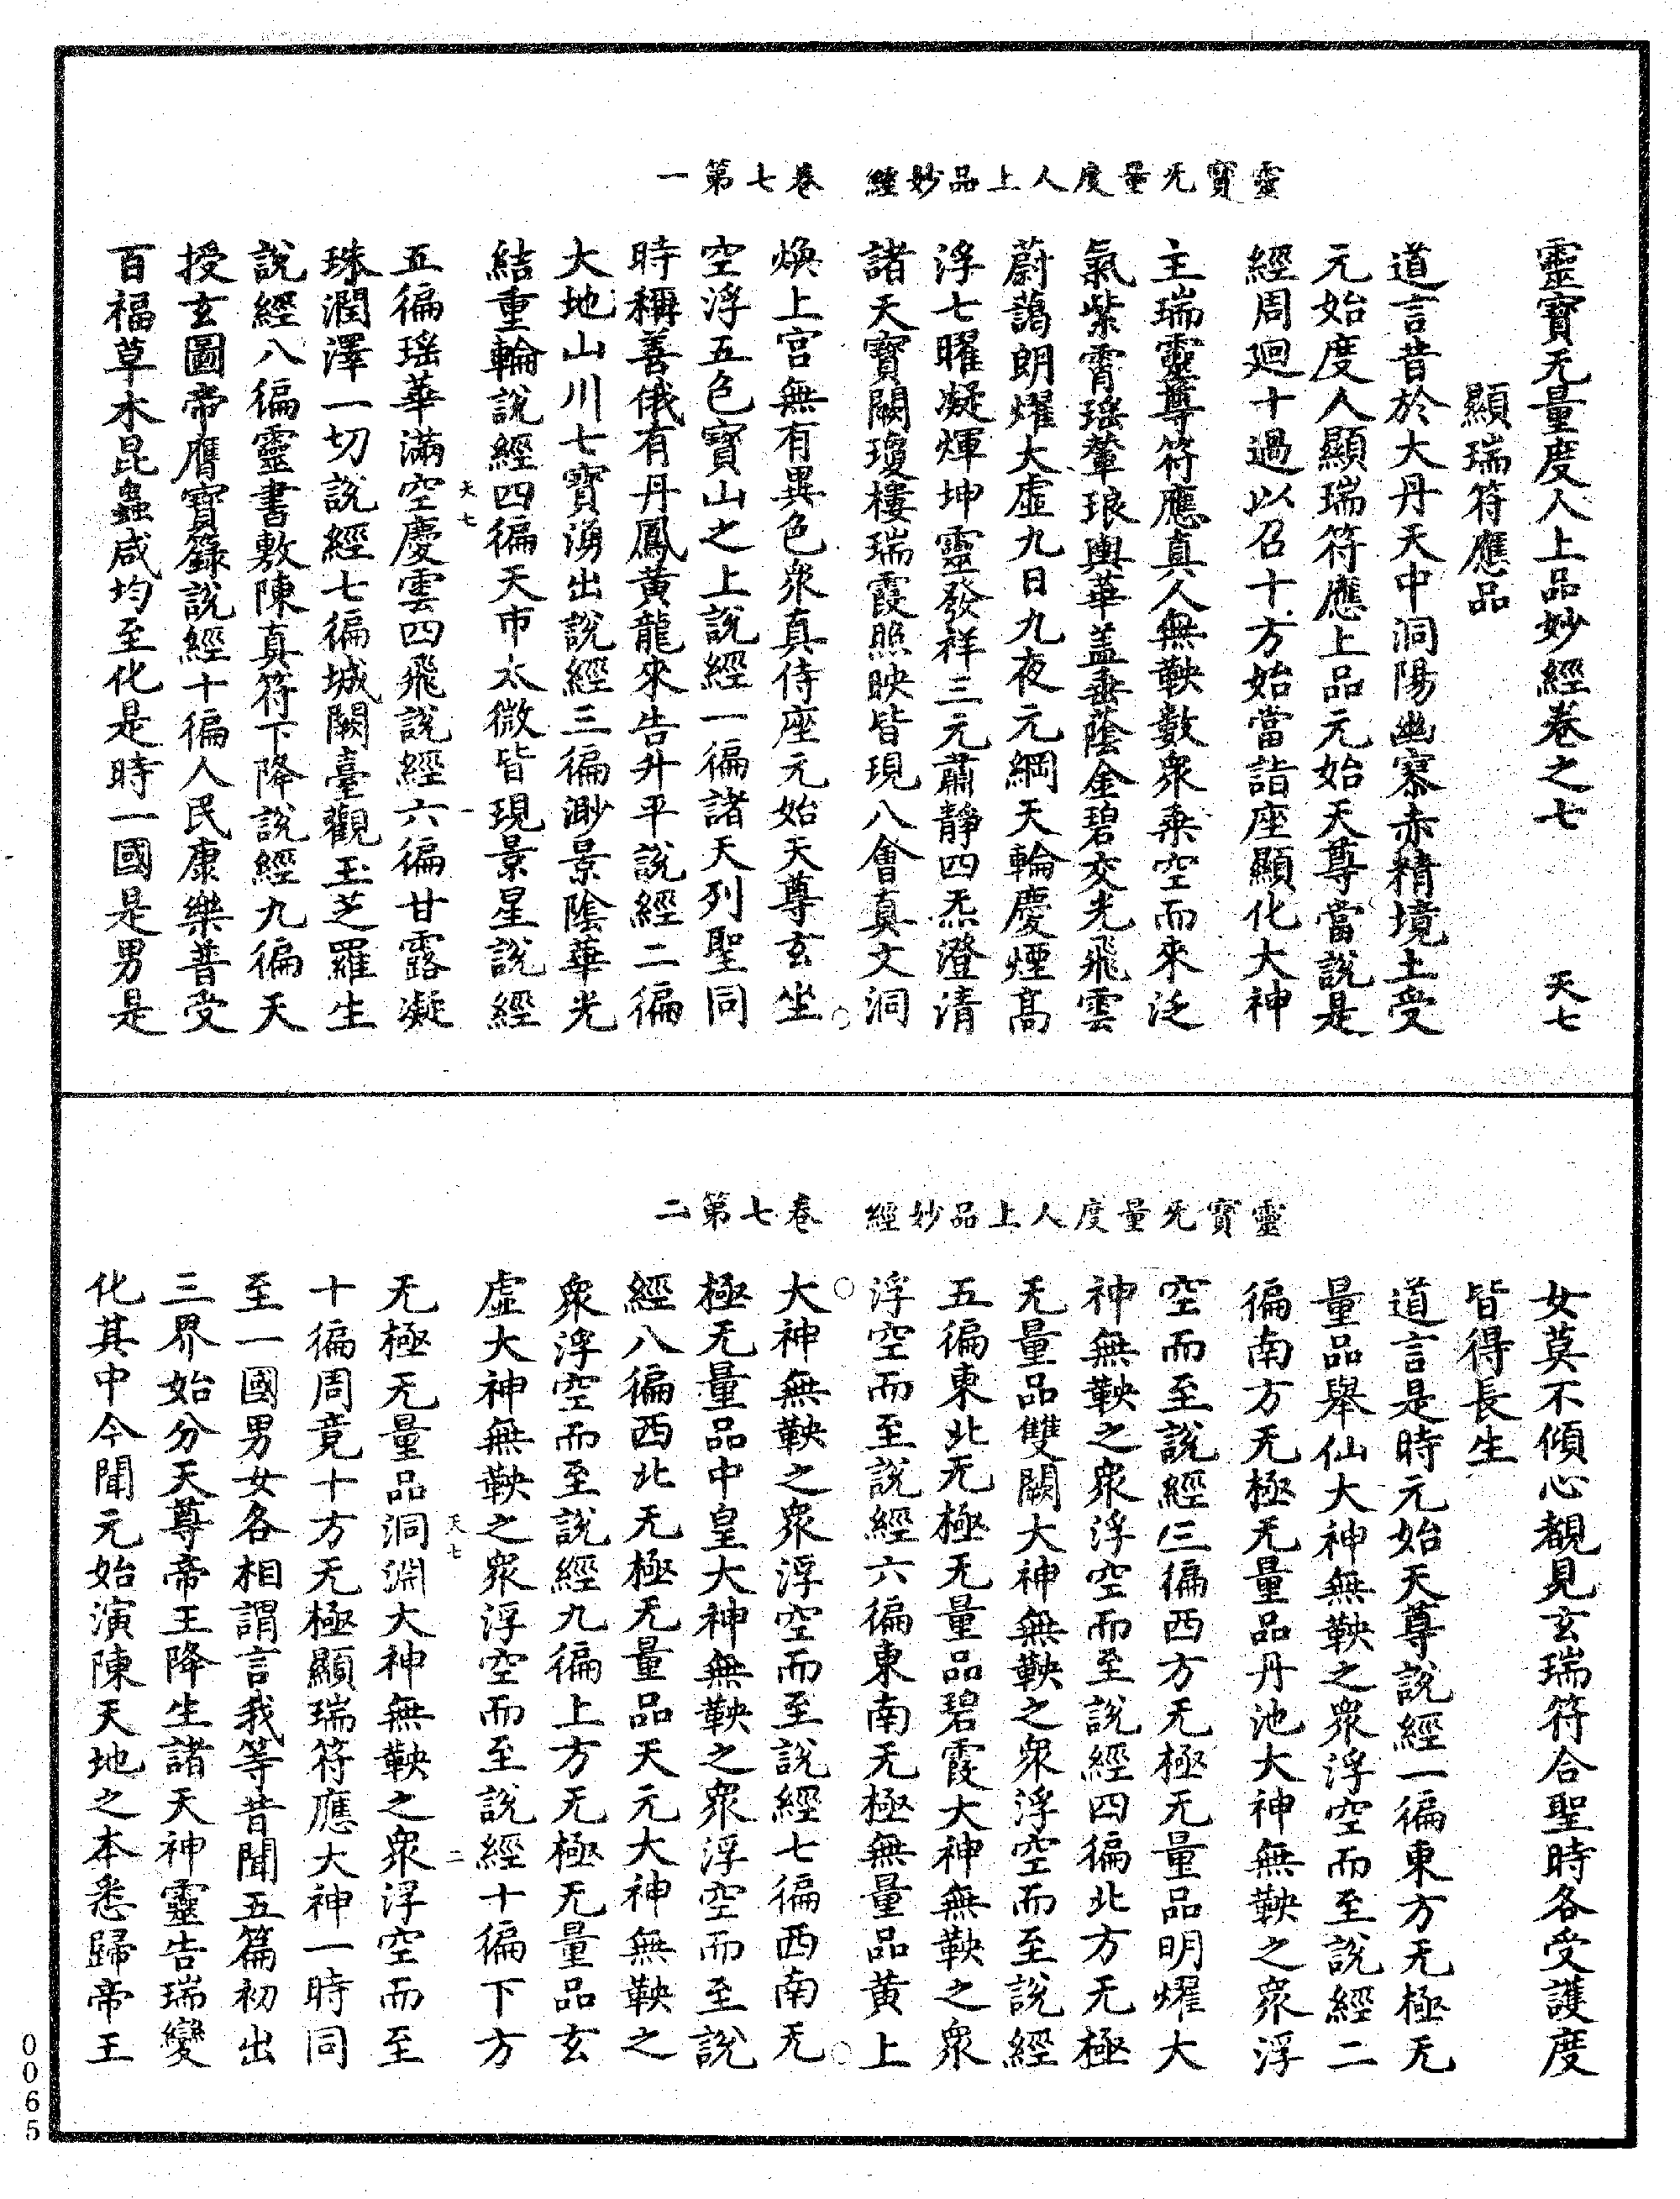 靈寶无量度人上品妙經　卷七第一
靈寶无量度人上品妙經卷之七　天七
顯瑞符應品
道言昔於大丹天中洞陽幽寥赤精境土受
元始度人顯瑞符應上品元始天尊當說是
經周廻十過以召十方始當詣座顯化大神
主瑞靈尊符應真人無鞅數衆乘空而來泛
氣紫霄瑶輦琅輿華盖垂蔭金碧交光飛雲
蔚藹朗燿大虛九日九夜元綱天輪慶煙髙
浮七曜凝煇坤靈發祥三元肅靜四炁澄清
諸天寶闕瓊樓瑞霞照映皆現八會真文洞
煥上宫無有異色衆真侍座元始天尊玄坐
空浮五色寶山之上說經一徧諸天列聖同
時稱善俄有丹鳳黄龍來告升平說經二徧
大地山川七寶湧出說經三徧渺景陰華光
結重輪說經四徧天市太微皆現景星說經
天七　一
五徧瑶華滿空慶雲四飛說經六徧甘露凝
珠潤澤一切說經七徧城闕臺觀玉芝羅生
說經八徧靈書敷陳真符下降說經九徧天
授玄圖帝膺寶籙說經十徧人民康樂普受
百福草木昆蟲咸均至化是時一國是男是
靈寶无量度人上品妙經　卷七第二
女莫不傾心覩見玄瑞符合聖時各受護度
皆得長生
道言是時元始天尊說經一徧東方无極无
量品舉仙大神無鞅之衆浮空而至說經二
徧南方无極无量品丹池大神無鞅之衆浮
空而至說經三徧西方无極无量品明燿大
神無鞅之衆浮空而至說經四徧北方无極
无量品雙闕大神無鞅之衆浮空而至說經
五徧東北无極无量品碧霞大神無鞅之衆
浮空而至說經六徧東南无極無量品黄上
大神無鞅之衆浮空而至說經七徧西南无
極无量品中皇大神無鞅之衆浮空而至說
經八徧西北无極无量品天元大神無鞅之
衆浮空而至說經九徧上方无極无量品玄
虛大神無鞅之衆浮空而至說經十徧下方
天七　二
无極无量品洞淵大神無鞅之衆浮空而至
十徧周竟十方无極顯瑞符應大神一時同
至一國男女各相謂言我等昔聞五篇初出
三界始分天尊帝王降生諸天神靈告瑞變
化其中今聞元始演陳天地之本悉歸帝王
0065